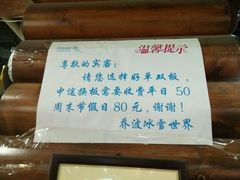 温馨提示
尊敬的宾客:
请您选择好单双板,
中途换板需要收费平日50
周末节假日80元,谢谢!
乔波冰雪世界